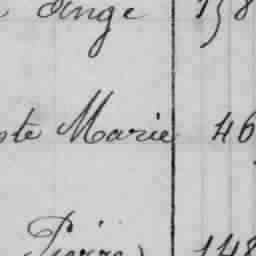 Ange 158
ste Marie 46
Pierre 148